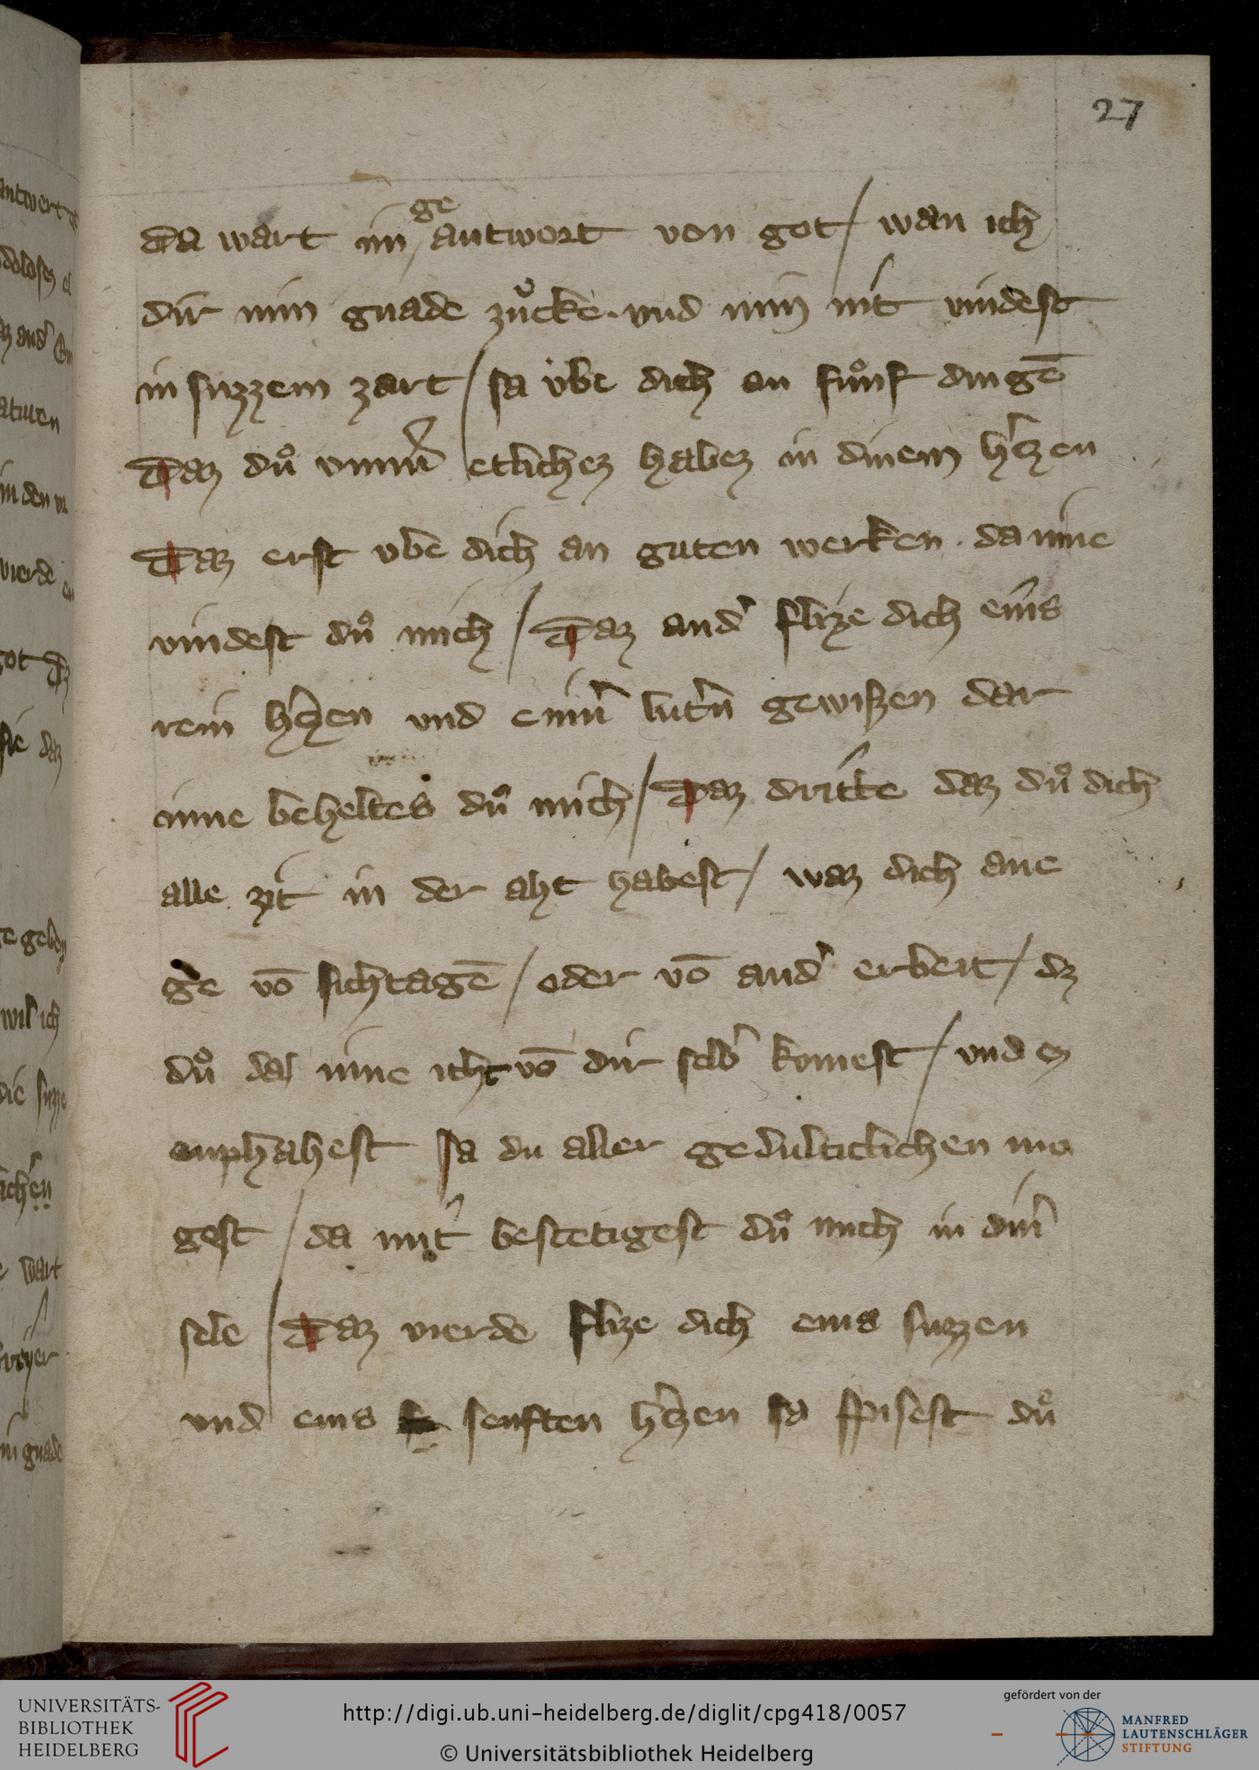 27
da wart im geantwort von got / wan ich
dir min gnade zuͦcke · und min nit vindest
in suzzem zart / sa vbe dich an fuͦnf dingē
Daz duͦ vmm̄ etliches habez in dinem h̓tzen
Daz erst vbe dich an guten werken · da mine
vindest duͦ mich / Daz and̓ flize dich eins
rein h̓tzen und einn̓ lut̓n gewiszen dar
inne beheltes duͦ mich / Daz dritte daz duͦ dich
alle zit in der aht habest / waz dich ane
ge vō sichtagē / oder vō and̓ erbeit / dz
duͦ da mine iht vō dir selb̓ komest / und ez
enphahest sa du aller gedulticlichen mo
gest / da mit bestetigest duͦ mich in din̓
sele / Daz vierde flize dich eins suzzen
und eins senften h̓tzen sa spisest duͦ
UNIVERSITÄTS-
BIBLIOTHEK
HEIDELBERG
http://digi.ub.uni-heidelberg.de/diglit/cpg418/0057
© Universitätsbibliothek Heidelberg
gefördert von der
MANFRED
LAUTENSCHLÄGER
STIFTUNG